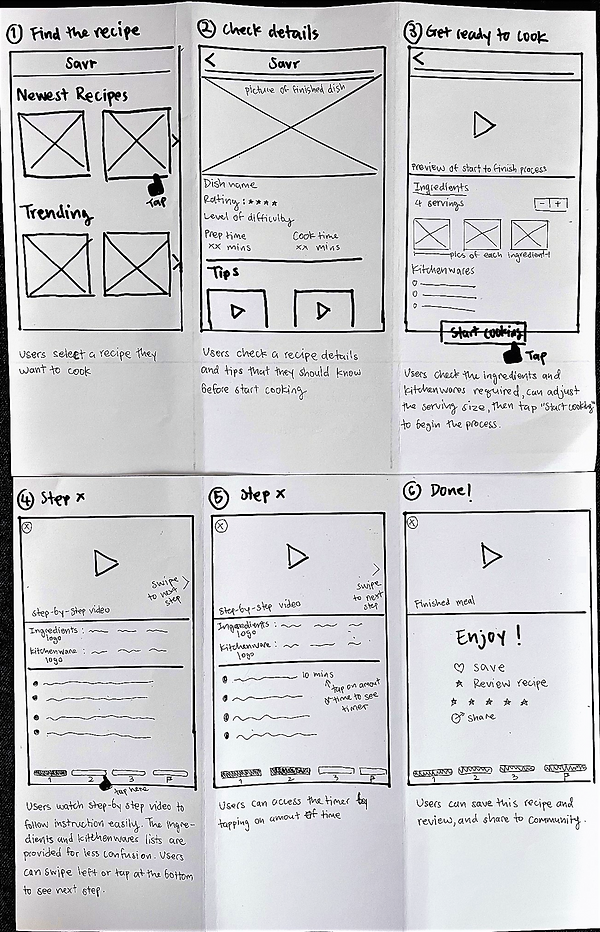 ① Find the recipe
Savr
Newest Recipes
Tap
Trending
Users select a recipe they
want to cook
② Check details
Savr
picture of finished dish
Dish name
Rating : ★★★★
Level of difficulty
Prep time Cook time
xx mins xx mins
Tips
Users check a recipe details
and tips that they should know
before start cooking
③ Get ready to cook
Preview of start to finish process
Ingredients
4 servings - | +
pics of each ingredient
Kitchenwares
Start cooking
Tap
Users check the ingredients and
kitchenwares required, can adjust
the serving size, then tap "Start cooking"
to begin the process.
④ Step x
x
swipe
to next
step
Step-by-step video
Ingredients :
logo
Kitchenware :
logo
1 2 3
tap here
Users watch step-by step video to
follow instruction easily. The ingre-
dients and kitchenwares lists are
provided for less confusion. Users
can swipe left or tap at the bottom
to see next step.
⑤ Step x
x
swipe
to next
step
Step-by-step video
Ingredients :
logo
Kitchenware :
logo
10 mins
tap on amout
of time to see
timer
1 2 3
Users can access the timer by
tapping on amout of time
⑥ Done!
x
Finished meal
Enjoy !
♡ Save
★ Review recipe
★ ★ ★ ★ ★
Share
1 2 3
Users can save this recipe and
review, and share to community.